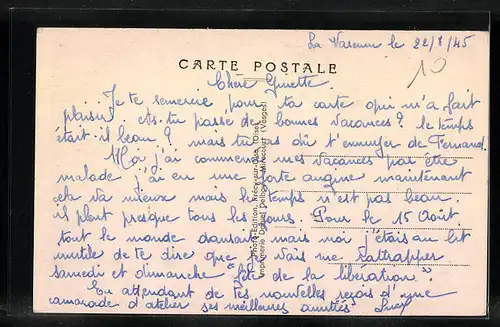 La Varenne le 22/8/45
10
CARTE POSTALE
Chère Ginette.
Je te remercie pour ta carte qui m'a fait
plaisir. As-tu passé de bonnes vacances? le temps
était-il beau? mais tu as dû t'ennuyer de Fernand.
Moi j'ai commencé mes vacances par être
malade j'ai eu une forte angine maintenant
cela va mieux mais le temps n'est pas beau.
il pleut presque tous les jours. Pour le 15 Août
tout le monde dansait mais moi j'étais au lit
inutile de te dire que je vais me rattrapper
samedi et dimanche "fête de la libération"
En attendant de tes nouvelles reçois d'une
camarade d'atelier ses meilleures amitiés
Photo-Edition, Crécy-sur-
Imprimerie Daniel Delboy, Mirecourt (Vosges)